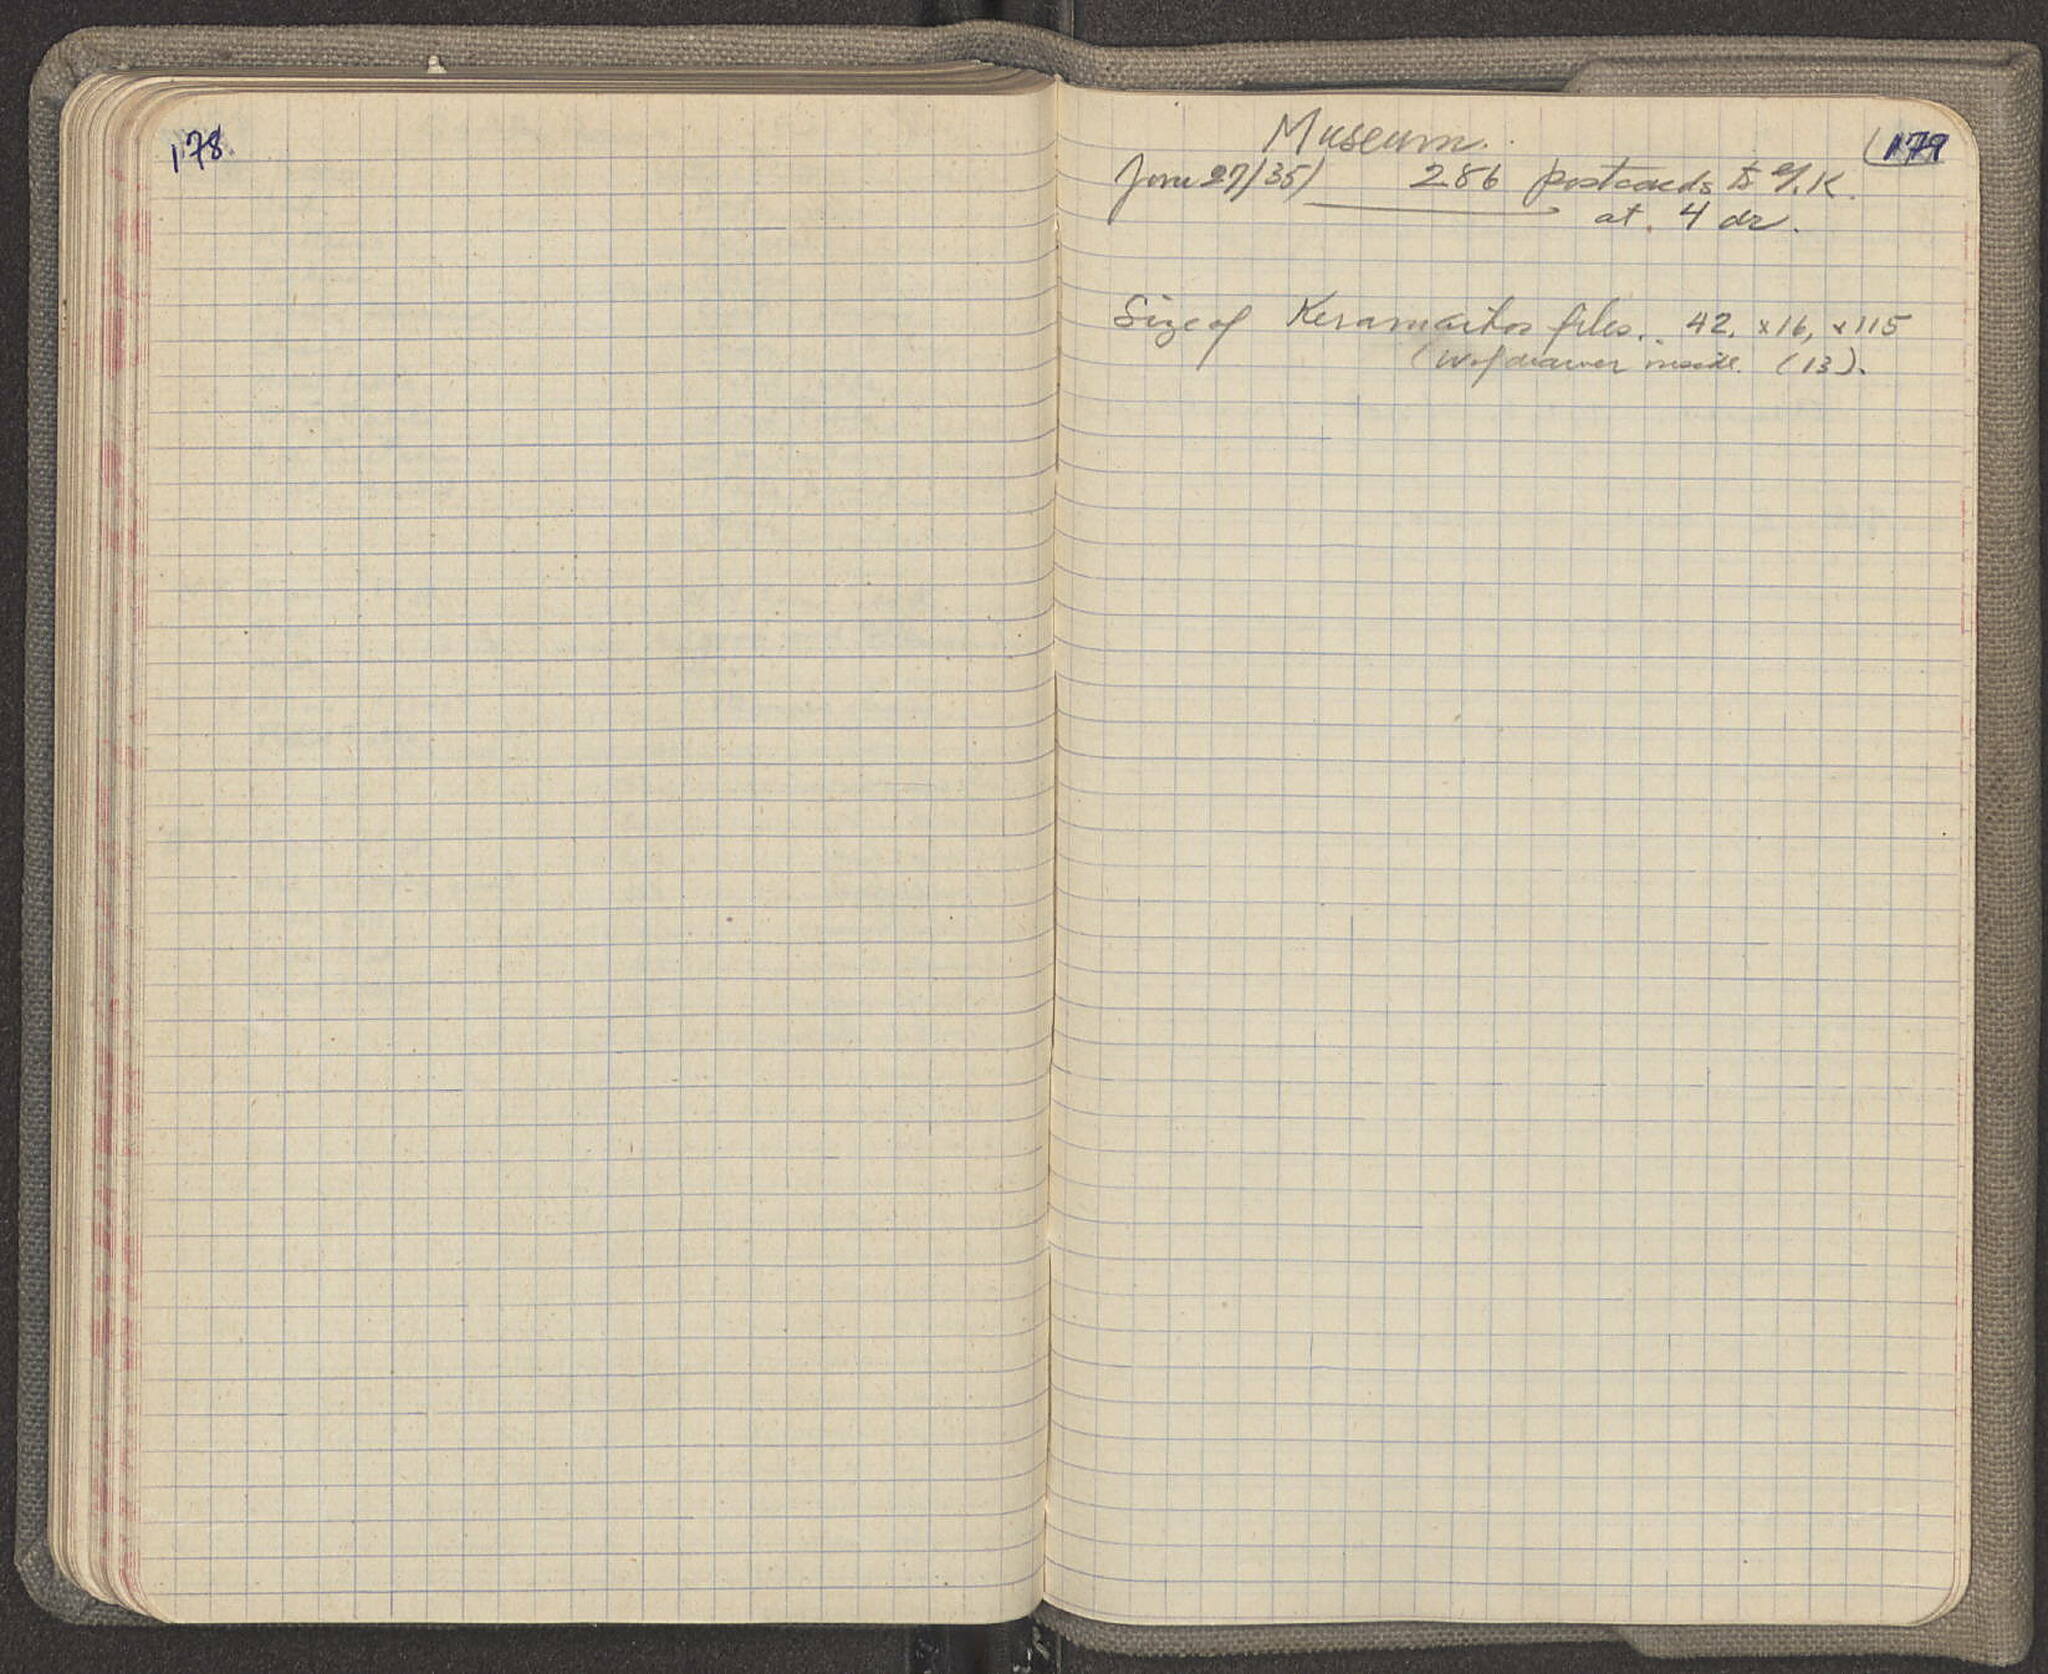 178.
179
Museum.
June 27/35) 286 postcards to G.K.
at. 4 dr.
Size of Keramaikos files.. 42. x 16, x 115
(W of drawer inside. (13).